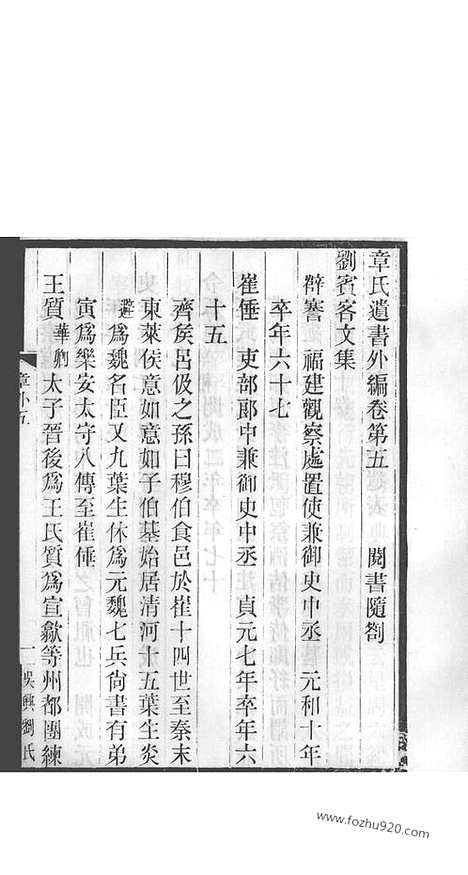 章氏遺書外編卷第五　閱書隨劄
劉賓客文集
薛謇　福建觀察處置使兼御史中丞　元和十年
卒年六十七
崔倕　吏部郎中兼御史中丞　貞元七年卒年六
十五
齊矦呂伋之孫曰穆伯食邑於崔十四世至秦末
東萊侯意如意如子伯基始居清河十五葉生炎
爲魏名臣又九葉生休爲元魏七兵尙書有弟
寅爲樂安太守八傳至崔倕
王質　華卿　太子晉後爲王氏質爲宣歙等州都團練
章外五
一
吳興劉氏
www.fozhu920.com